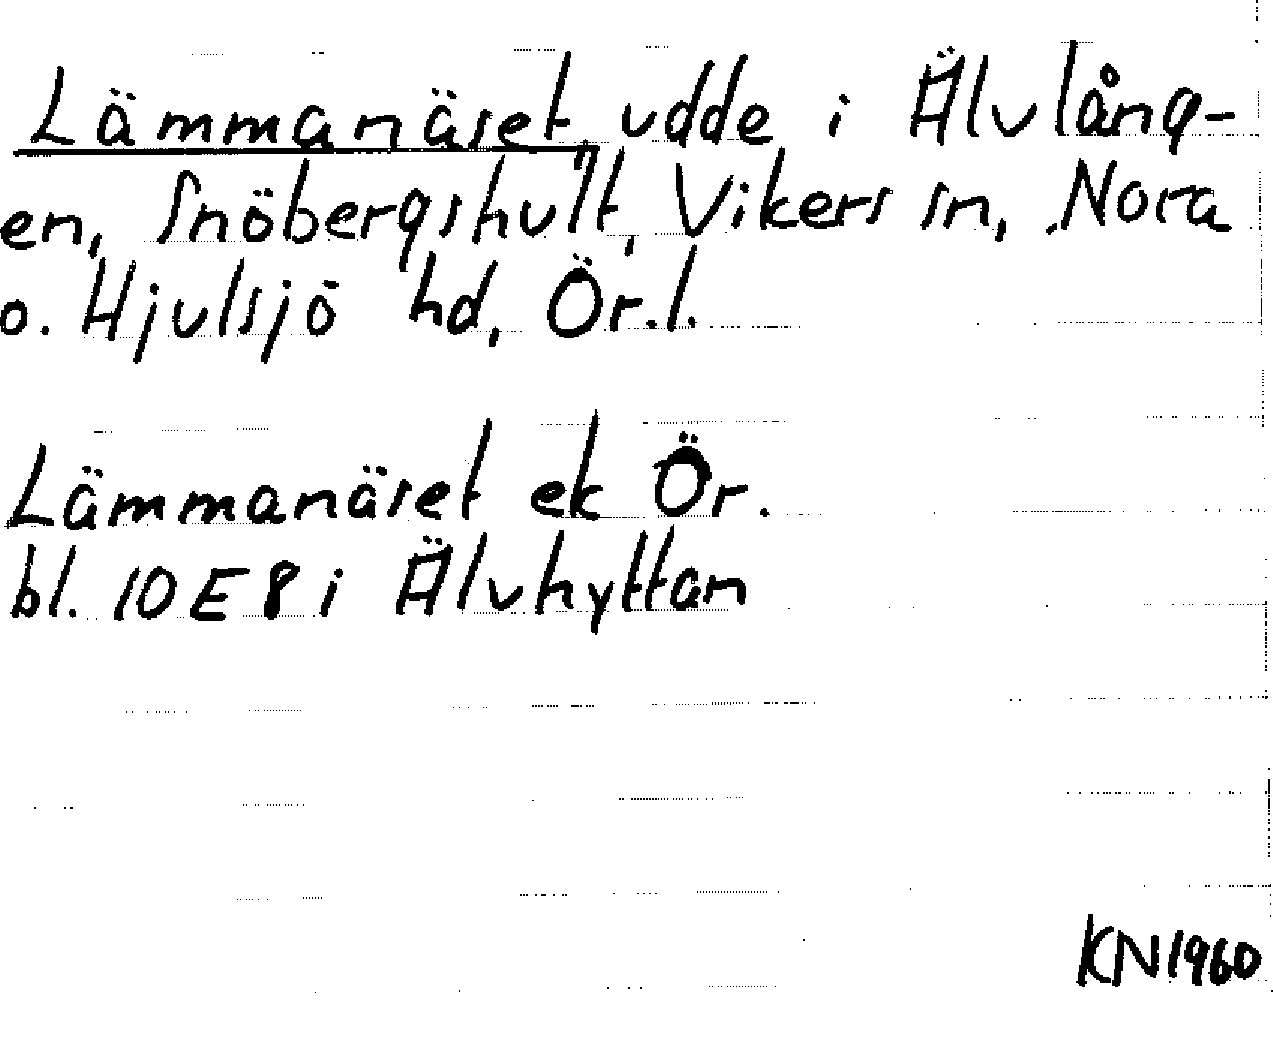 Lämmanäset, udde i Älvlång-
en, Snöbergshult, Vikers sn, Nora
o. Hjulsjö hd, Ör.l.
Lämmanäset ek Ör.
bl. 10E8i Älvhyttan
KN1960